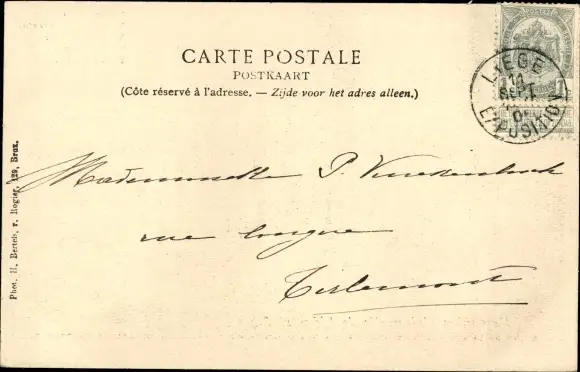 CARTE POSTALE
POSTKAART
(Côte réservé à l'adresse. — Zijde voor het adres alleen.)
LIEGE
14
SEPT
EXPOSITION
Mademoiselle P.
rue longue
Tirlemont
Phot. H. Bertels, r. Rogier, 129, Brux.